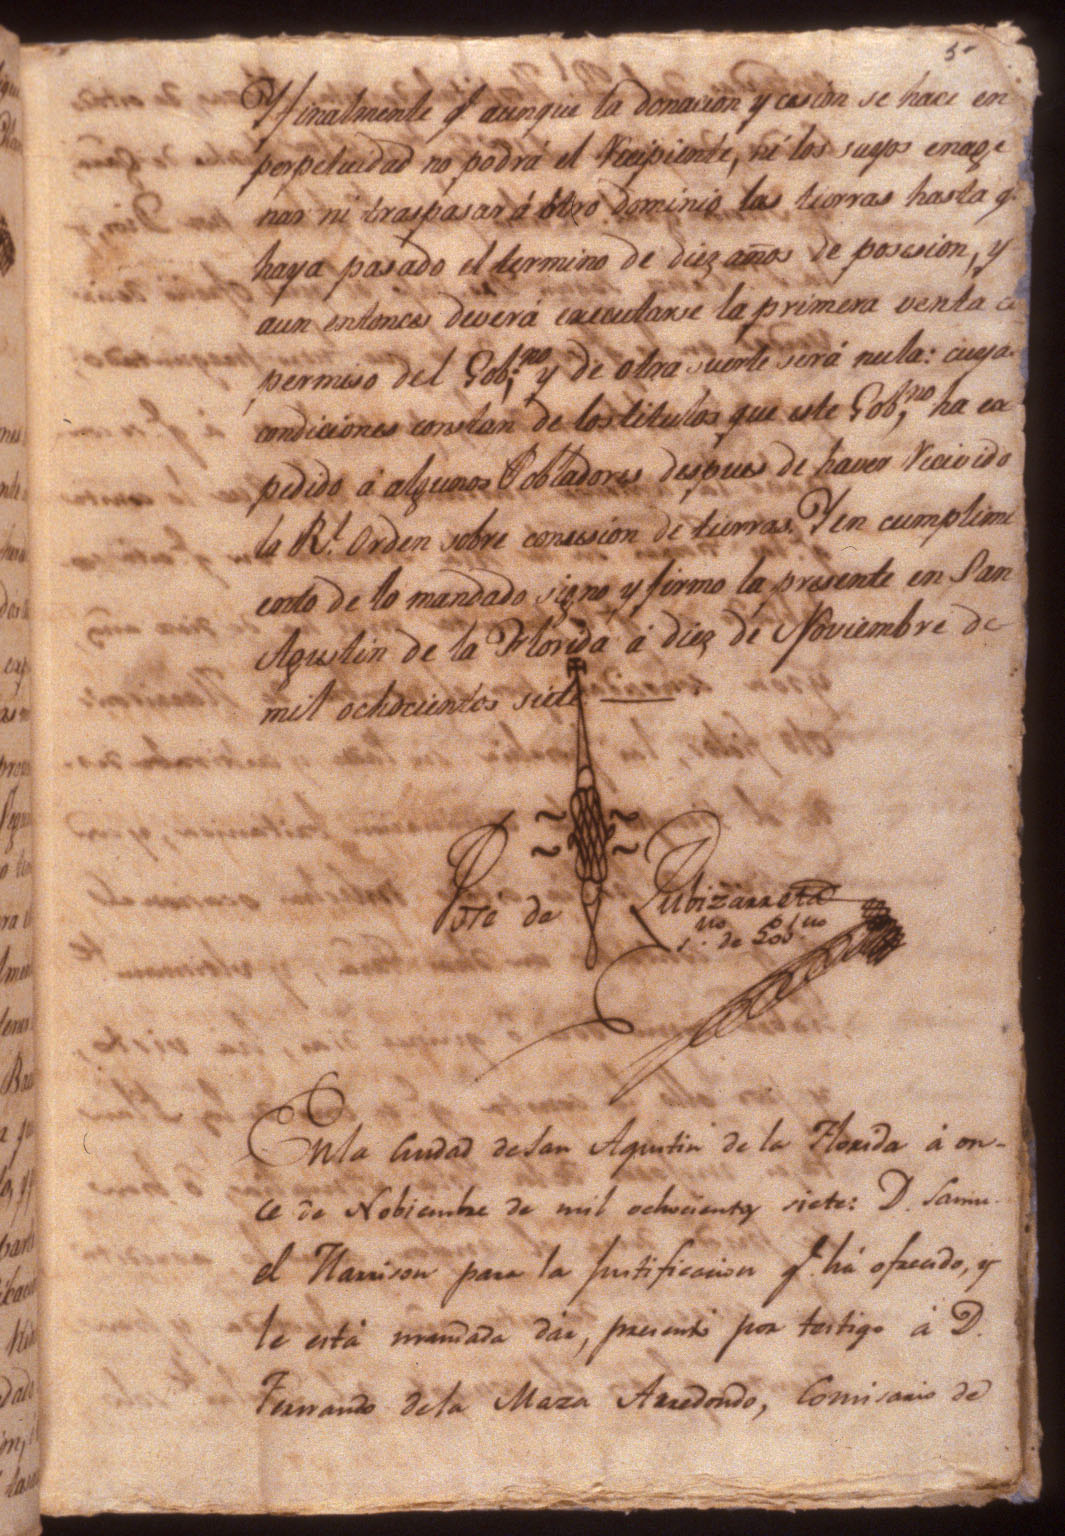 5
Y finalmente q.e aunque la donacion y cesion se hace en
perpetuidad no podrá el Recipiente, ni los suyos enage
nar ni traspasar á otro dominio las tierras hasta q.e
haya pasado el termino de diez años de posesion, y
aun entonces deverá executarse la primera venta c
permiso del Gob.no y de otra suerte será nula: cuya
condiciones constan de los titulos que este Gob.no ha ex
pedido á algunos Pobladores despues de haver Recivido
la R.l Orden sobre concesion de tierras. Y en cumplimi
ento de lo mandado signo y firmo la presente en San
Agustin de la Florida á diez de Noviembre de
mil ochocientos siete
de Zubizarreta
s.no de Gob.no
En la Ciudad de San Agustin de la Florida á on-
ce de Nobiembre de mil ochocientos siete: D. Samu-
el Harrison para la justificacion q.e há ofrecido, y
le está mandada dár, presentó por testigo á D.
Fernando de la Maza Arredondo, Comisario de